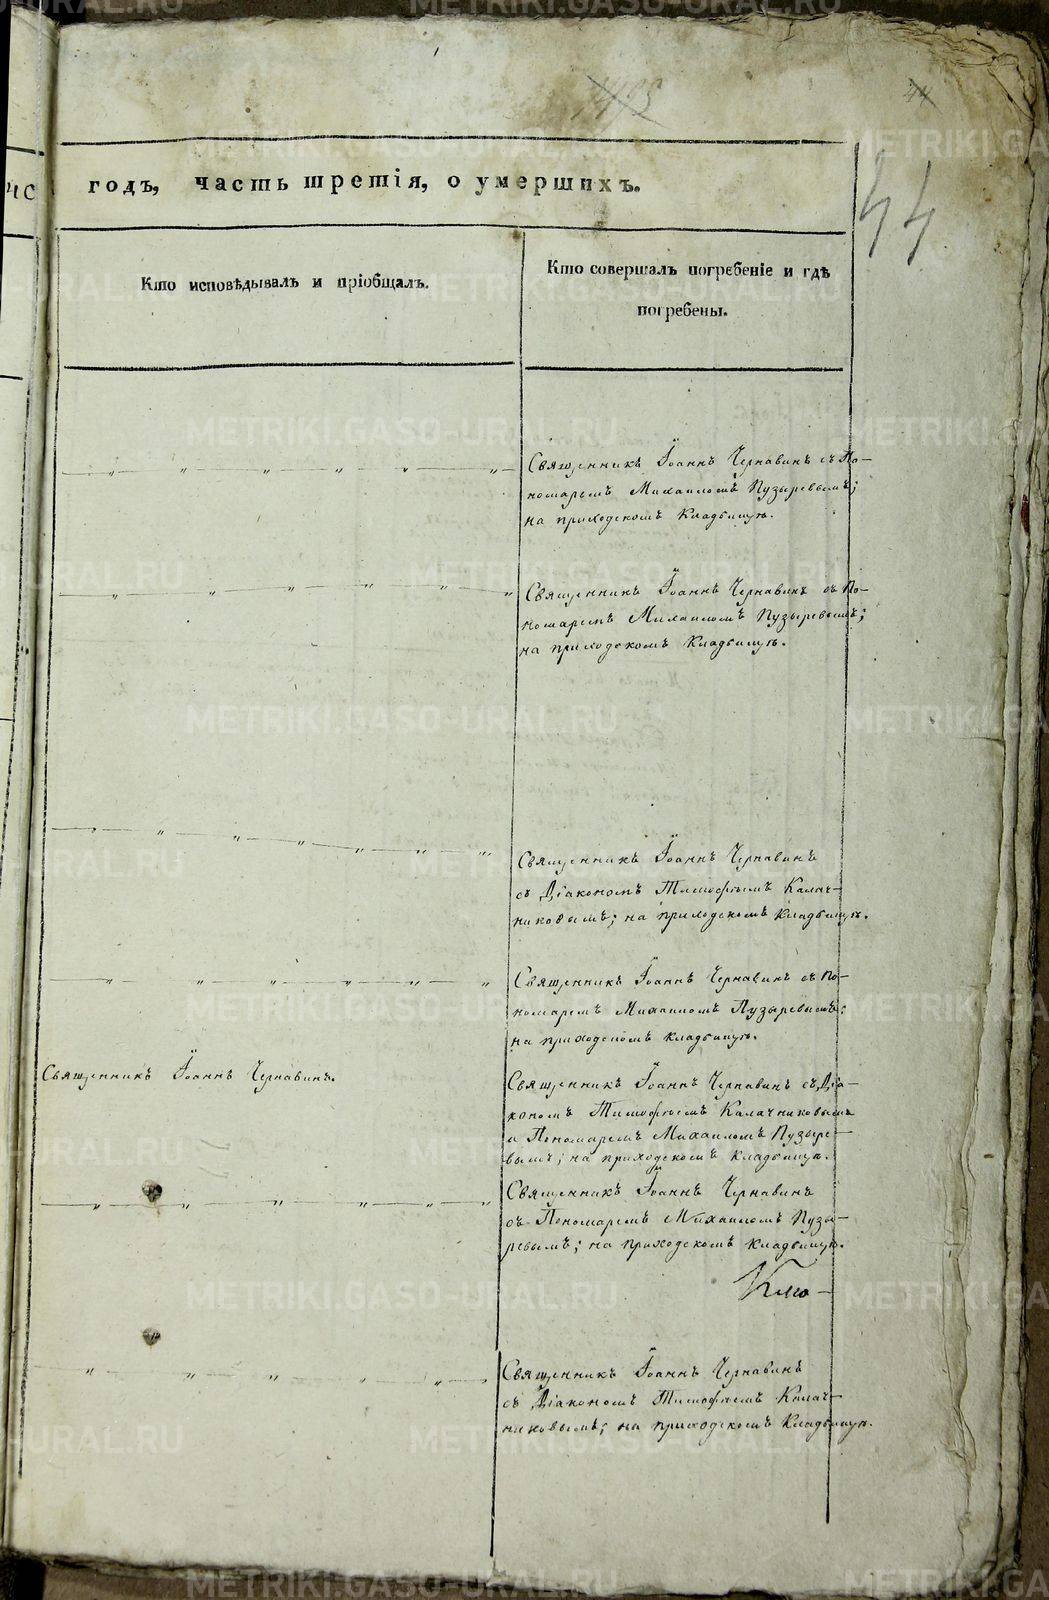 44
44
годъ, часть третія, о умершихъ.
Кто исповѣдывалъ и пріобщалъ.
Кто совершалъ погребеніе и гдѣ
погребены.
Священникъ Іоаннъ Чернавинъ съ По-
номаремъ Михаиломъ Пузыревымъ;
на приходскомъ кладбищѣ.
Священникъ Іоаннъ Чернавинъ съ По-
номаремъ Михаиломъ Пузыревымъ;
на приходскомъ кладбищѣ.
Священникъ Іоаннъ Чернавинъ
съ Діакономъ Тимофѣемъ Калач-
никовымъ; на приходскомъ кладбищѣ.
Священникъ Іоаннъ Чернавинъ съ По-
номаремъ Михаиломъ Пузыревымъ;
на приходскомъ кладбищѣ.
Священникъ Іоаннъ Чернавинъ.
Священникъ Іоаннъ Чернавинъ съ Діа-
кономъ Тимофѣемъ Калачниковымъ
и Пономаремъ Михаиломъ Пузыре-
вымъ; на приходскомъ кладбищѣ.
Священникъ Іоаннъ Чернавинъ
съ Пономаремъ Михаиломъ Пузы-
ревымъ; на приходскомъ кладбищѣ.
Священникъ Іоаннъ Чернавинъ
съ Діакономъ Тимофѣемъ Калач-
никовымъ; на приходскомъ кладбищѣ.
METRIKI.GASO-URAL.RU